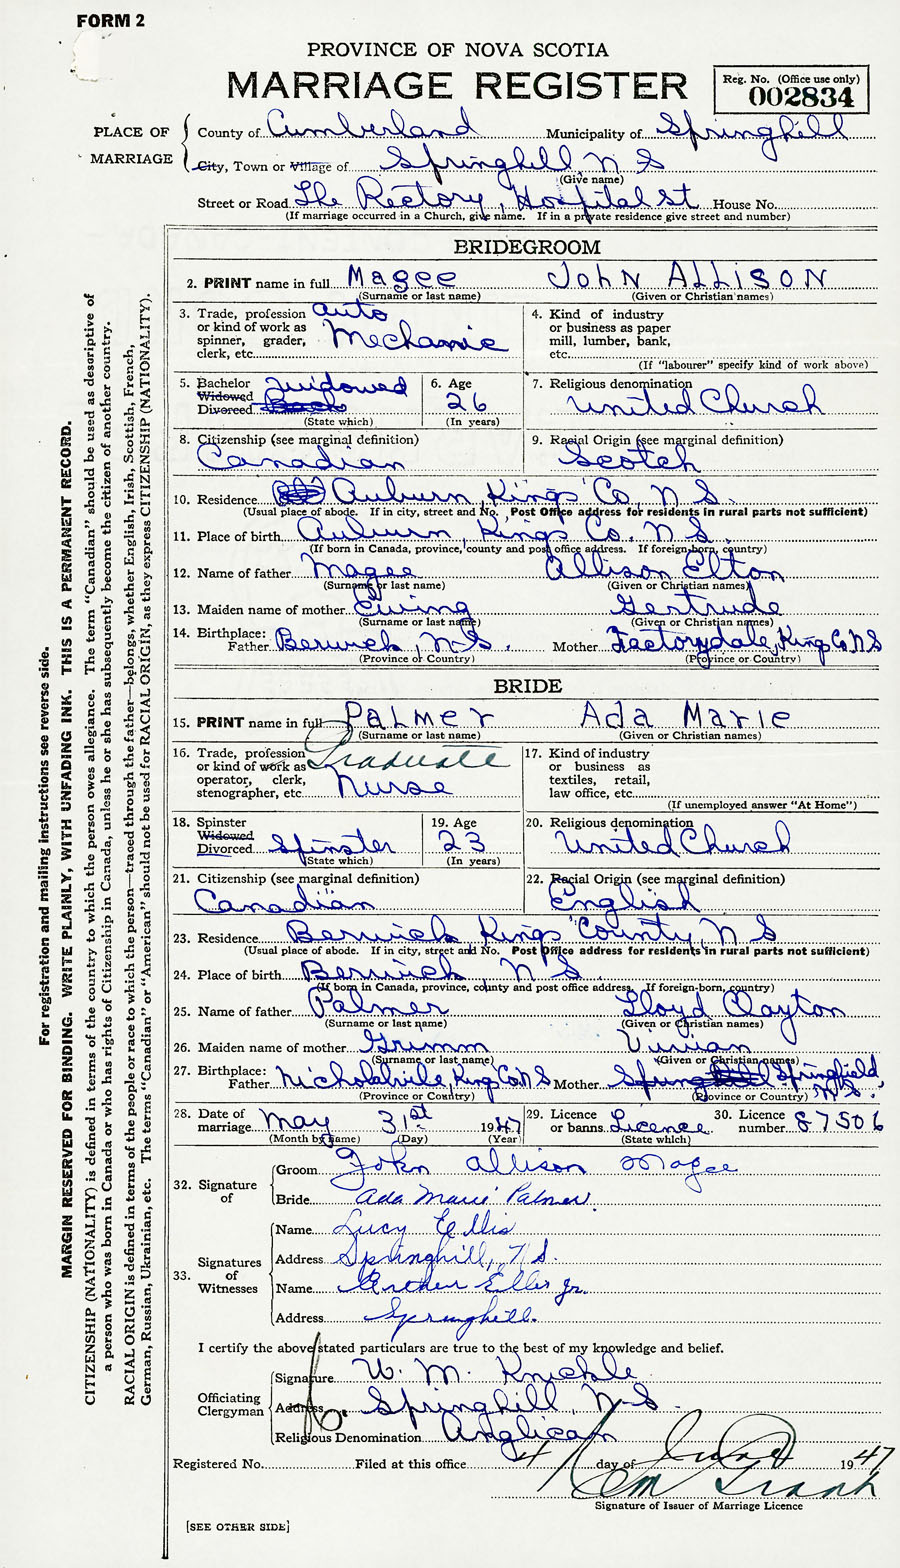 FORM 2
PROVINCE OF NOVA SCOTIA
MARRIAGE REGISTER
Reg. No. (Office use only)
002834
PLACE OF MARRIAGE
County of Cumberland Municipality of Springhill
City, Town or Village of Springhill N S
(Give name)
Street or Road The Rectory, Hospital St House No.
(If marriage occurred in a Church, give name. If in a private residence give street and number)
BRIDEGROOM
2. PRINT name in full Magee John Allison
(Surname or last name) (Given or Christian names)
3. Trade, profession or kind of work as spinner, grader, clerk, etc. Auto Mechanic
4. Kind of industry or business as paper mill, lumber, bank, etc.
(If "labourer" specify kind of work above)
5. Bachelor Widowed Divorced Widowed
(State which)
6. Age 26
(In years)
7. Religious denomination United Church
8. Citizenship (see marginal definition) Canadian
9. Racial Origin (see marginal definition) Scotch
10. Residence Auburn Kings Co, N S.
(Usual place of abode. If in city, street and No. Post Office address for residents in rural parts not sufficient)
11. Place of birth Auburn, Kings Co. N S.
(If born in Canada, province, county and post office address. If foreign-born, country)
12. Name of father Magee Allison Elton
(Surname or last name) (Given or Christian names)
13. Maiden name of mother Ewing Gertrude
(Surname or last name) (Given or Christian names)
14. Birthplace: Father Berwick, N.S. Mother Factorydale, Kings Co N S
(Province or Country) (Province or Country)
BRIDE
15. PRINT name in full Palmer Ada Marie
(Surname or last name) (Given or Christian names)
16. Trade, profession or kind of work as operator, clerk, stenographer, etc. Graduate Nurse
17. Kind of industry or business as textiles, retail, law office, etc.
(If unemployed answer "At Home")
18. Spinster Widowed Divorced Spinster
(State which)
19. Age 23
(In years)
20. Religious denomination United Church
21. Citizenship (see marginal definition) Canadian
22. Racial Origin (see marginal definition) English
23. Residence Berwick Kings County, N S
(Usual place of abode. If in city, street and No. Post Office address for residents in rural parts not sufficient)
24. Place of birth Berwick N S.
(If born in Canada, province, county and post office address. If foreign-born, country)
25. Name of father Palmer Lloyd Clayton
(Surname or last name) (Given or Christian names)
26. Maiden name of mother Grimm Vivian
(Surname or last name) (Given or Christian names)
27. Birthplace: Father Nicholsville, Kings Co N S Mother Springfield, N.S.
(Province or Country) (Province or Country)
28. Date of marriage May 31st 1947
(Month by name) (Day) (Year)
29. Licence or banns Licence
(State which)
30. Licence number 87506
32. Signature of
Groom John Allison Magee
Bride Ada Marie Palmer
33. Signatures of Witnesses
Name Lucy Ellis
Address Springhill, N.S.
Name Arthur Ellis Jr.
Address Springhill.
I certify the above stated particulars are true to the best of my knowledge and belief.
Officiating Clergyman
Signature W. M. Knickle
Address Springhill, N-S.
Religious Denomination Anglican
Registered No. Filed at this office 4 day of June 1947
Signature of Issuer of Marriage Licence
[SEE OTHER SIDE]
For registration and mailing instructions see reverse side.
MARGIN RESERVED FOR BINDING. WRITE PLAINLY, WITH UNFADING INK. THIS IS A PERMANENT RECORD.
CITIZENSHIP (NATIONALITY) is defined in terms of the country to which the person owes allegiance. The term "Canadian" should be used as descriptive of
a person who was born in Canada or who has rights of Citizenship in Canada, unless he or she has subsequently become the citizen of another country.
RACIAL ORIGIN is defined in terms of the people or race to which the person—traced through the father—belongs, whether English, Irish, Scottish, French,
German, Russian, Ukrainian, etc. The terms "Canadian" or "American" should not be used for RACIAL ORIGIN, as they express CITIZENSHIP (NATIONALITY).